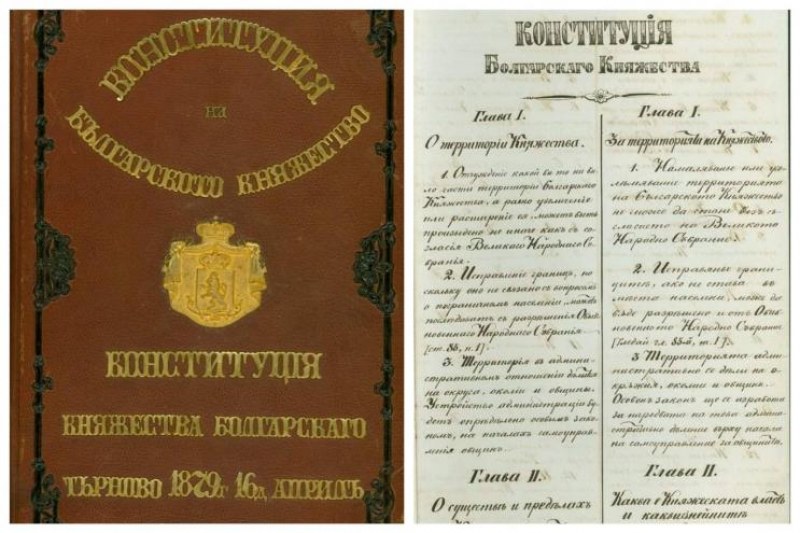 КОНСТИТУЦИЯ
НА
БЪЛГАРСКОТО КНЯЖЕСТВО
КОНСТИТУЦІЯ
КНЯЖЕСТВА БОЛГАРСКАГО
ТЪРНОВО 1879г 16д АПРИЛЪ
КОНСТИТУЦІЯ
БОЛГАРСКАГО КНЯЖЕСТВА
Глава I.
О территоріи Княжества.
1. Отчужденіе какой бы то ни бы-
ло части территоріи Болгарскаго
Княжества, а равно уменьшеніе
или расширеніе ея, можетъ быть
произведено не иначе какъ съ со-
гласія Великаго Народнаго Со-
бранія.
2. Исправленіе границъ, по
скольку оно не связано съ вопросомъ
о пограничномъ населеніи, можетъ
послѣдовать съ разрѣшенія Обык-
новеннаго Народнаго Собранія
3. Территорія въ админи-
стративномъ отношеніи дѣлится
на округа, околіи и общины.
Устройство администраціи бу-
детъ опредѣлено особымъ зако-
номъ, на началахъ самоуправ-
ленія общинъ.
Глава II.
О существѣ и предѣлахъ
Глава I.
За територията на Княжеството.
1. Намаляванье или уго-
лѣмяванье территорията
на Българското Княжество
не може да стане безъ съ-
гласието на Великото
Народно Събрание.
2. Исправянье грани-
цитѣ, ако не става въ
места населени, може да
бѫде разрѣшено и отъ Оби-
кновенното Народно Събрание
3 Територията адми-
нистративно се дѣли на о-
крѫжия, околии и общини.
Особенъ законъ ще се изработи
за нарѣдбата на това админи-
стративно дѣление върху начала
на самоуправление за общинитѣ.
Глава II.
Каква е Княжеската власть
и какви сѫ нейнитѣ